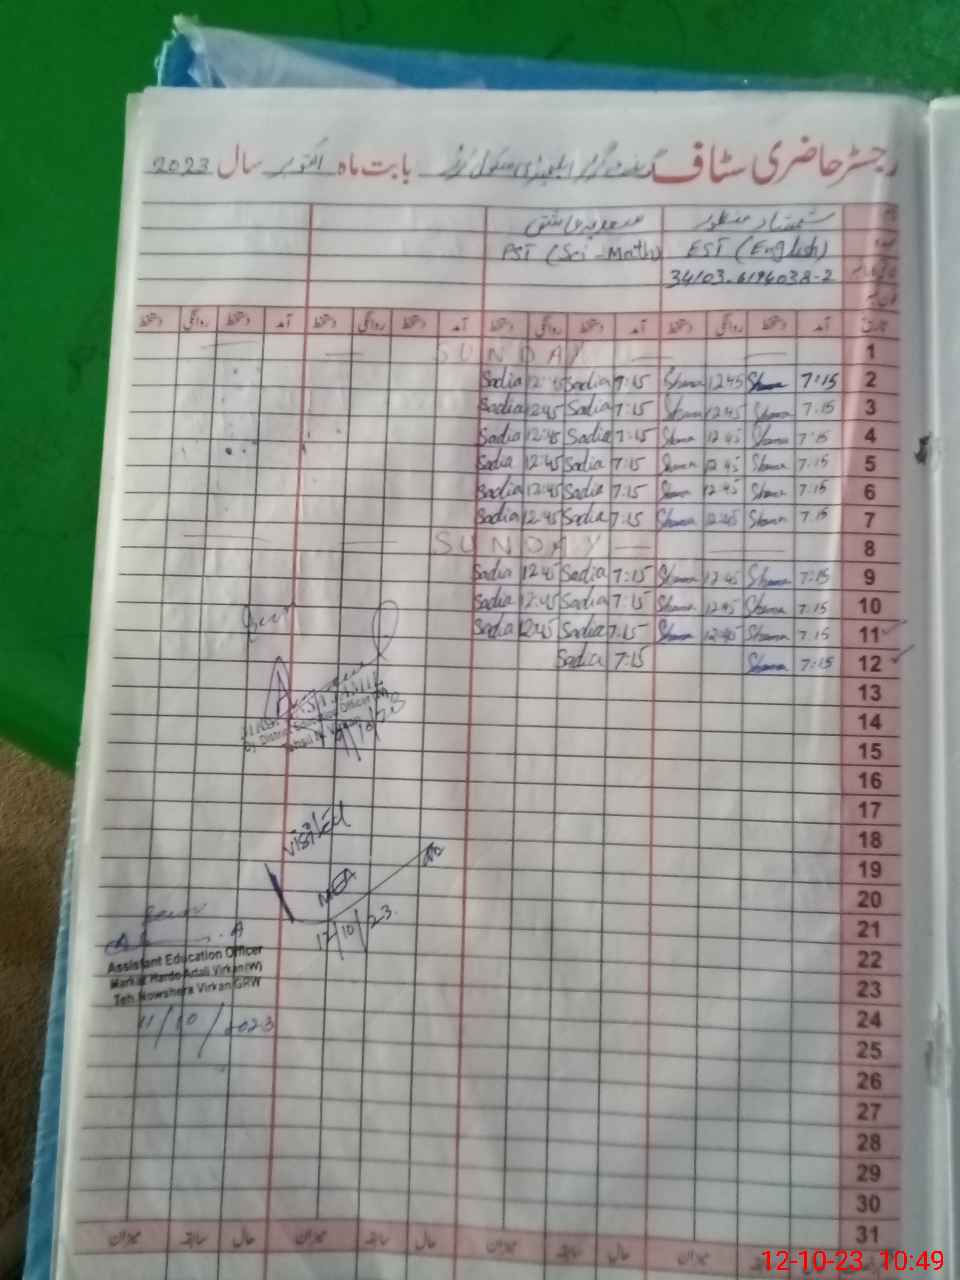 رجسٹر حاضری سٹاف گورنمنٹ گرلز ایلیمنٹری سکول بابت ماہ اکتوبر سال 2023
شمشاد منظور سعدیہ عاشق
EST (English) PST (Sci-Math)
34103-6194038-2
تاریخ آمد دستخط روانگی دستخط آمد دستخط روانگی دستخط آمد دستخط روانگی دستخط آمد دستخط روانگی دستخط
SUNDAY 1
Sadia 12:45 Sadia 7:15 Shama 12:45 Shama 7:15 2
Sadia 12:45 Sadia 7:15 Shama 12:45 Shama 7:15 3
Sadia 12:45 Sadia 7:15 Shama 12:45 Shama 7:15 4
Sadia 12:45 Sadia 7:15 Shama 12:45 Shama 7:15 5
Sadia 12:45 Sadia 7:15 Shama 12:45 Shama 7:15 6
Sadia 12:45 Sadia 7:15 Shama 12:45 Shama 7:15 7
SUNDAY 8
Sadia 12:45 Sadia 7:15 Shama 12:45 Shama 7:15 9
Sadia 12:45 Sadia 7:15 Shama 12:45 Shama 7:15 10
Sadia 12:45 Sadia 7:15 Shama 12:45 Shama 7:15 11
Sadia 7:15 Shama 7:15 12
13
14
15
16
17
18
19
20
21
22
23
24
25
26
27
28
29
30
31
District Education Officer
Visited
MEA
12/10/23.
Assistant Education Officer
Markaz Hardo Adali Virkan (W)
Teh. Nowshera Virkan GRW
11/10/2023
حال سابقہ میزان حال سابقہ میزان حال سابقہ میزان
12-10-23 10:49